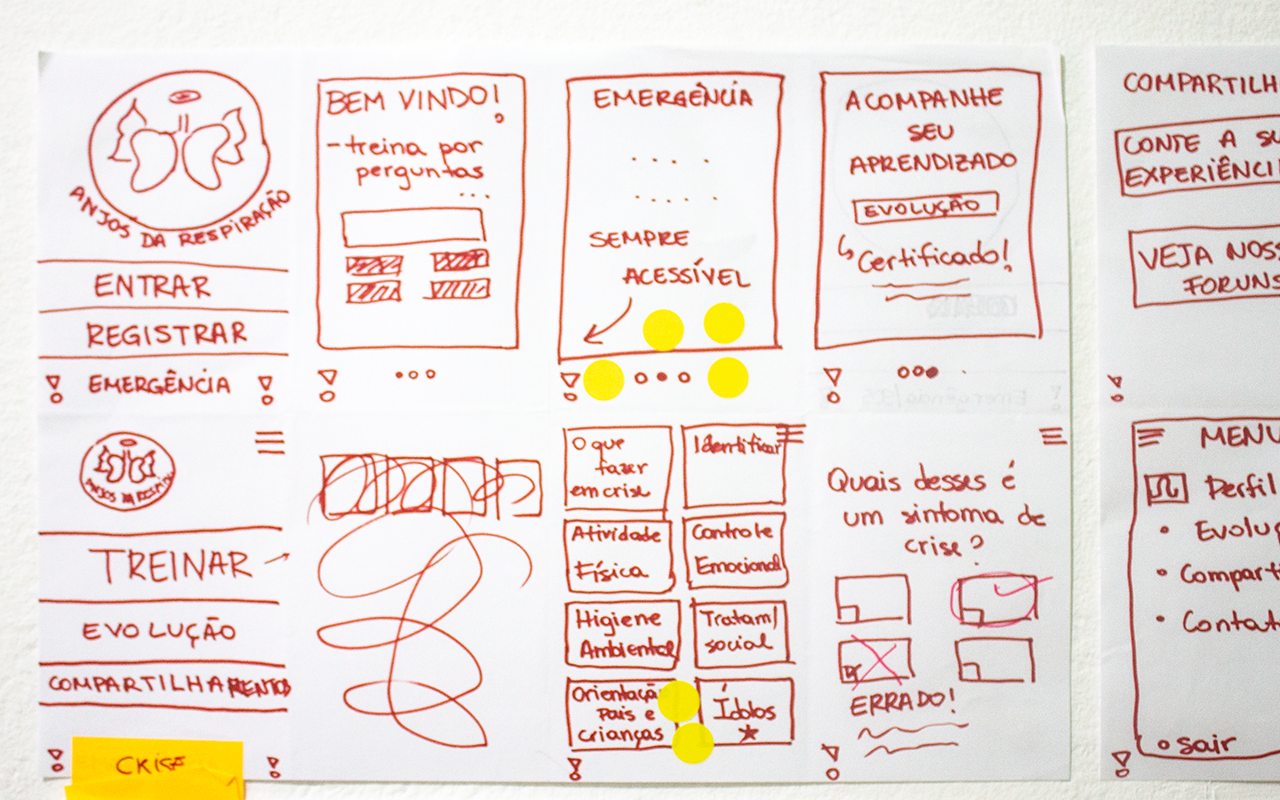 ANJOS DA RESPIRAÇÃO
ENTRAR
REGISTRAR
EMERGÊNCIA
BEM VINDO!
- treina por
perguntas
...
EMERGÊNCIA
SEMPRE
ACESSÍVEL
ACOMPANHE
SEU
APRENDIZADO
EVOLUÇÃO
Certificado!
COMPARTILH
CONTE A SU
EXPERIÊNCI
VEJA NOSS
FORUNS
TREINAR
EVOLUÇÃO
COMPARTILHAMENTOS
CRISE
O que
fazer
em crise
Identificar
Atividade
Física
Controle
Emocional
Higiene
Ambiental
Tratam/
social
Orientação
Pais e
crianças
Ídolos
Quais desses é
um sintoma de
crise?
ERRADO!
MENU
Perfil
• Evolu
• Comparti
• Contat
sair